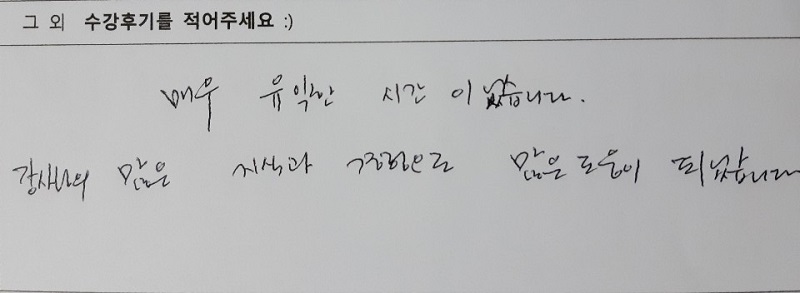 그 외 수강후기를 적어주세요 :)
매우 유익한 시간 이였습니다.
강사님의 많은 지식과 열정으로 많은 도움이 되었습니다